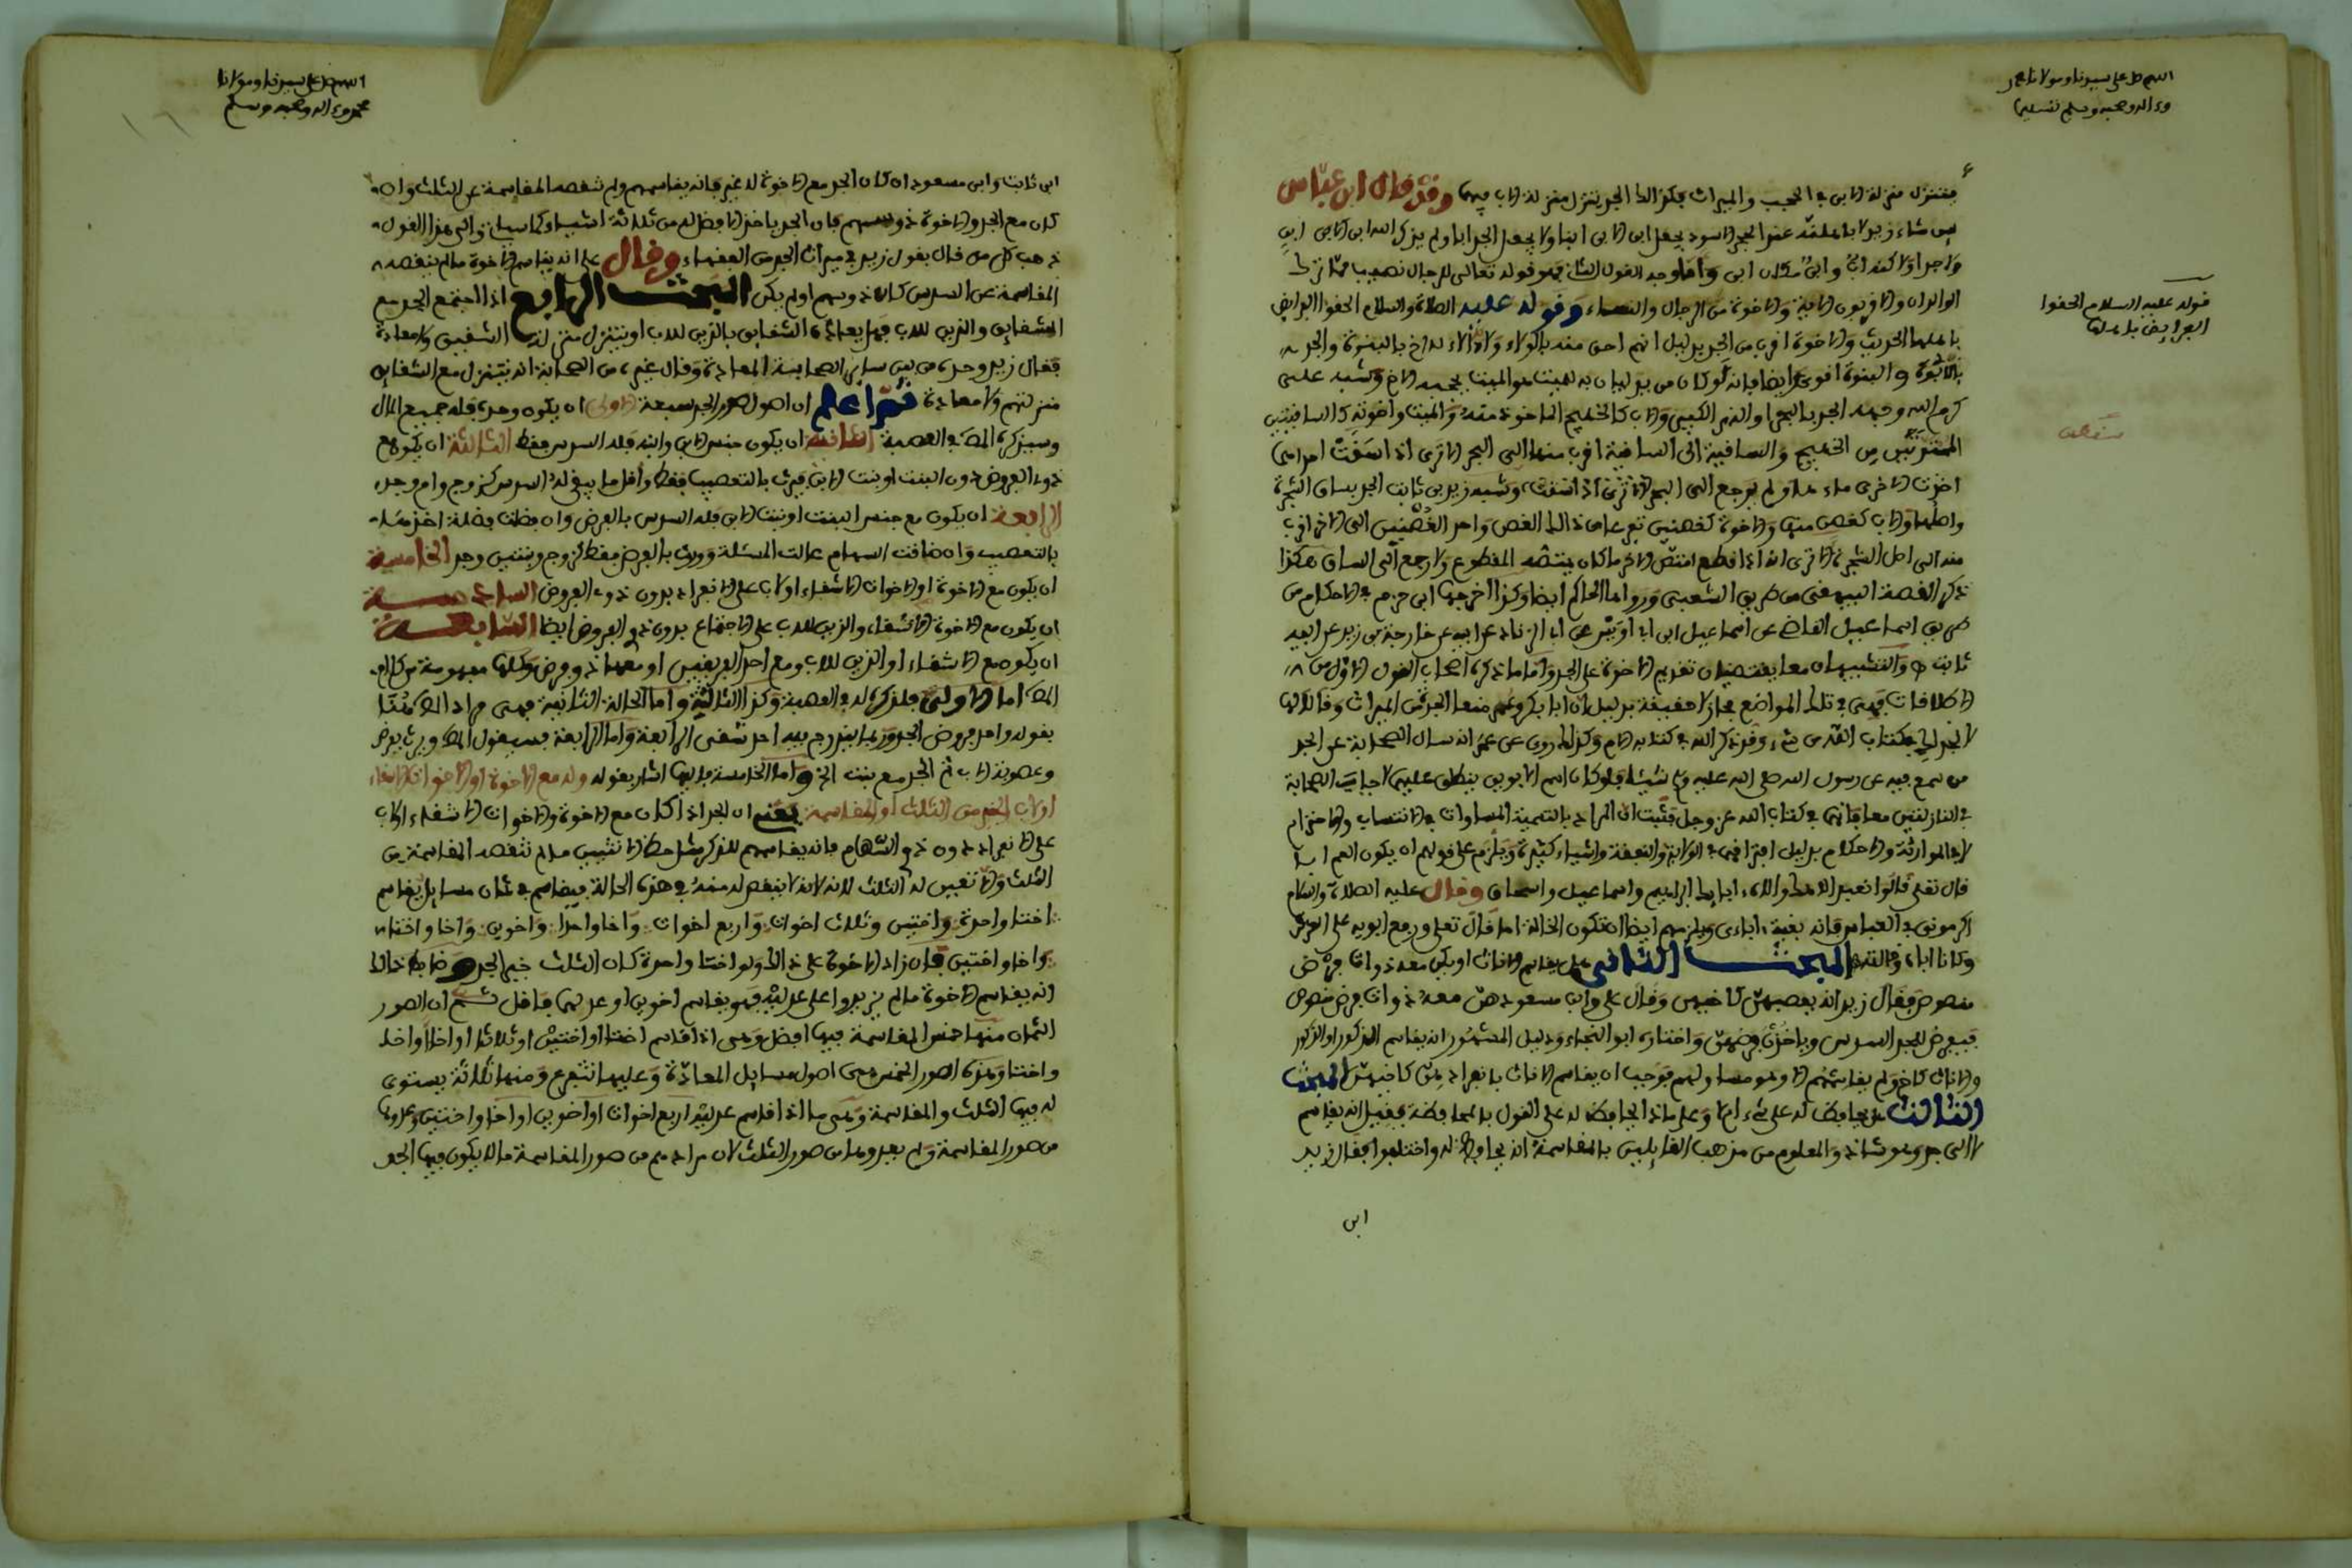 اللهم صل على سيدنا ومولانا محمد
وءاله وصحبه وسلم تسليما
فتنزل منزلة الابن في الحجب والميراث فكذلك الجد يتنزل منزلة الاب فيهما وقد قال ابن عباس
من شاء زيد لاباهلته عند الحجر الاسود يجعل ابن الابن ابنا ولا يجعل الجد ابا ولم يذكر الله
واما وجه القول الثاني فهو قوله تعالى للرجال نصيب مما ترك
الوالدان والاقربون الاية والاخوة من الرجال والنساء وقوله عليه الصلاة والسلام الحقوا الفرايض
باهلها الحديث والاخوة اقرب من الجد بدليل انهم احق منه بالولاء ولادلاء الاخ بالبنوة والجد
بالابوة والبنوة اقوى وايضا فانه لو كان من يدليان به لهيت هو الميت يحجب الاخ وشبه علي
كرم الله وجهه الجد بالبحر او النهر الكبير والاب كالخليج الماخوذ منه والميت واخوته كالساقيتين
الممتدتين من الخليج والساقية الى الساقية اقرب منها الى البحر الا ترى اذا سقت احداهما
اخذت الاخرى ماءها ولم يرجع الى البحر وشبهه زيد بن ثابت الجد بساق الشجرة
واصلها والاب كغصن منها والاخوة كغصنين تفرعا من ذلك الغصن واحد الغصنين الى الاخر اقرب
منه الى اصل الشجرة الا ترى انه اذا قطع امتص الاخر ما كان يمتصه المقطوع ولا رجع الى الساق هكذا
ذكر القصة البيهقي من طريق الشعبي ورواها الحاكم ايضا وكذا اخرجها ابن حزم في الاحكام من
طريق اسماعيل القاضي عن اسماعيل ابن ابي اويس عن ابي الزناد عن ابيه عن خارجة بن زيد عن ابيه
ثابت والتشبيهان معا يقتضيان تقديم الاخوة على الجد واما ما ذكره اصحاب القول الاول من
الاطلاقات فهي في تلك المواضع مجازا لا حقيقة بدليل ان ابا بكر وعمر منعا الجدة من الميراث وقالا لها
لا نجد لك في كتاب الله من شيء وقد ذكر الله في كتابه الام وكذلك روي عن عمر انه سال الصحابة عن الجد
من سمع فيه عن رسول الله صلى الله عليه وسلم شيئا فلو كان اسم الابوين ينطلق عليهما لاجابه الصحابة
في النازلتين معا بانهما في كتاب الله عز وجل فثبت ان المراد بالتسمية المساوات في الانتساب والاحترام
لا في الموارثة والاحكام بدليل افتراقهم في الولاية والنفقة واشياء كثيرة ويلزم على قولهم ان يكون العم ابا
قال تعلى قالوا نعبد الاهك واله ءابايك ابراهيم واسماعيل واسحاق وقال عليه الصلاة والسلام
اكرموني في العباس فانه بقية ءاباءي ويلزمهم ايضا ان تكون الخالة اما قال تعلى ورفع ابويه على العرش
وكانا اباه وخالته المبحث الثاني هل يقاسم الاناث او يكن معه ذوات فرض
منصوص فقال زيد انه يعصبهن كاخيهن وقال علي وابن مسعود هن معه ذوات فرض منصوص
فيفرض للجد السدس وياخذن فرضهن واختاره ابو النجاء ودليل المشهور انه يقاسم الذكور او الذكور
والاناث كاخ ولم يقاسمهم الا وهو مساو لهم فوجب ان يقاسم الاناث بانفرادهن كاخيهن المبحث
الثالث هل يحافظ له على شيء ام لا وعلى ماذا يحافظ له على القول بالمحافظة فقيل انه يقاسم
لا الى حد وهو شاذ والمعلوم من مذهب القايلين بالمقاسمة انه يحافظ له واختلفوا فقال زيد
ابن
قوله عليه السلام الحقوا
الفرايض باهلها
اللهم صل على سيدنا ومولانا
محمد وءاله وصحبه وسلم
ابن ثابت وابن مسعود ان كان الجد مع الاخوة لا غير فانه يقاسمهم ولم تنقصه المقاسمة عن الثلث وان
كان مع الجد والاخوة ذو سهم فان الجد ياخذ الافضل من ثلاثة اشياء كما سياتي والى هذا القول
ذهب كل من قال بقول زيد في ميراث الجد من الفقهاء وقال علي انه يقاسم الاخوة ما لم ينقصه
المقاسمة عن السدس كان ذو سهم او لم يكن البحث الرابع اذا اجتمع الجد مع
الشقايق والذين للاب فهل يعاده الشقايق بالذين للاب او يتنزل منزلة الشقيق ولا معادة
فقال زيد وحده من بين ساير الصحابة المعادة وقال غيره من الصحابة انه يتنزل مع الشقايق
منزلتهم ولا معادة ثم اعلم ان اصول صور الجد سبعة الاولى ان يكون وحده فله جميع المال
وسيذكره المص في العصبة الثانية ان يكون مع ابن او ابنه فله السدس فقط الثالثة ان يكون مع
ذوي الفروض دون البنت او بنت الابن فيرث بالتعصيب فقط واقل ما يبقى له السدس كزوج وام وجد
الرابعة ان يكون مع جنس البنت او بنت الابن فله السدس بالفرض وان فضلت فضلة اخذها
بالتعصيب وان ضاقت السهام عالت المسئلة وورث بالفرض فقط كزوج وبنتين وجد الخامسة
ان يكون مع الاخوة او الاخوات الاشقاء او لاب على الانفراد بدون ذوي الفروض السادسة
ان يكون مع الاخوة الاشقاء والذين للاب على الاجتماع بدون ذوي الفروض ايضا السابعة
ان يكون مع الاشقاء او الذين للاب ومع احد الفريقين او معهما ذو فرض وكلها مفهومة من كلام
المص اما الاولى فلذكره له في العصبة وكذا الثالثة واما الحالة الثانية فهي مراد المص هنا
بقوله واحد فروض الجد وربما يندرج فيه احد شقي الرابعة واما الرابعة فسيقول المص ويرث بفرض
وعصوبة الاب ثم الجد مع بنت الخ واما الخامسة فاليها اشار بقوله وله مع الاخوة او الاخوات الاشقاء
او لاب الخير من الثلث او المقاسمة يعني ان الجد اذا كان مع الاخوة والاخوات الاشقاء او لاب
على الانفراد دون ذوي السهام فانه يقاسمهم للذكر مثل حظ الانثيين ما لم تنقصه المقاسمة من
الثلث والا تعين له الثلث لانه لا ينقص له منه في هذه الحالة فيقاسم في ثمان مسايل يقاسم
اختا واحدة واختين وثلاث اخوات واربع اخوات واخا واحدا واخوين واخا واختا
واخا واختين فان زاد الاخوة على ذلك ولو اختا واحدة كان الثلث خيرا للجد وضابط ذلك
انه يقاسم الاخوة ما لم يزيدوا على عدل مثليه فهو يقاسم اخوين او عدلهما فاقل ثم ان الصور
الثمان منها خمس المقاسمة فيها افضل وهي اذا قاسم اختا او اختين او ثلاثا او اخا او اخا
واختا وهذه الصور الخمس هي اصول مسايل المعادة وعليها تتفرع ومنها ثلاثة يستوي
له فيها الثلث والمقاسمة وهي ما اذا قاسم عدل مثليه اربع اخوات او اخوين او اخا واختين وعدوها
من صور المقاسمة ولم يعدوها من صور الثلث لان مرادهم من صور المقاسمة ما لا يكون فيها الجد